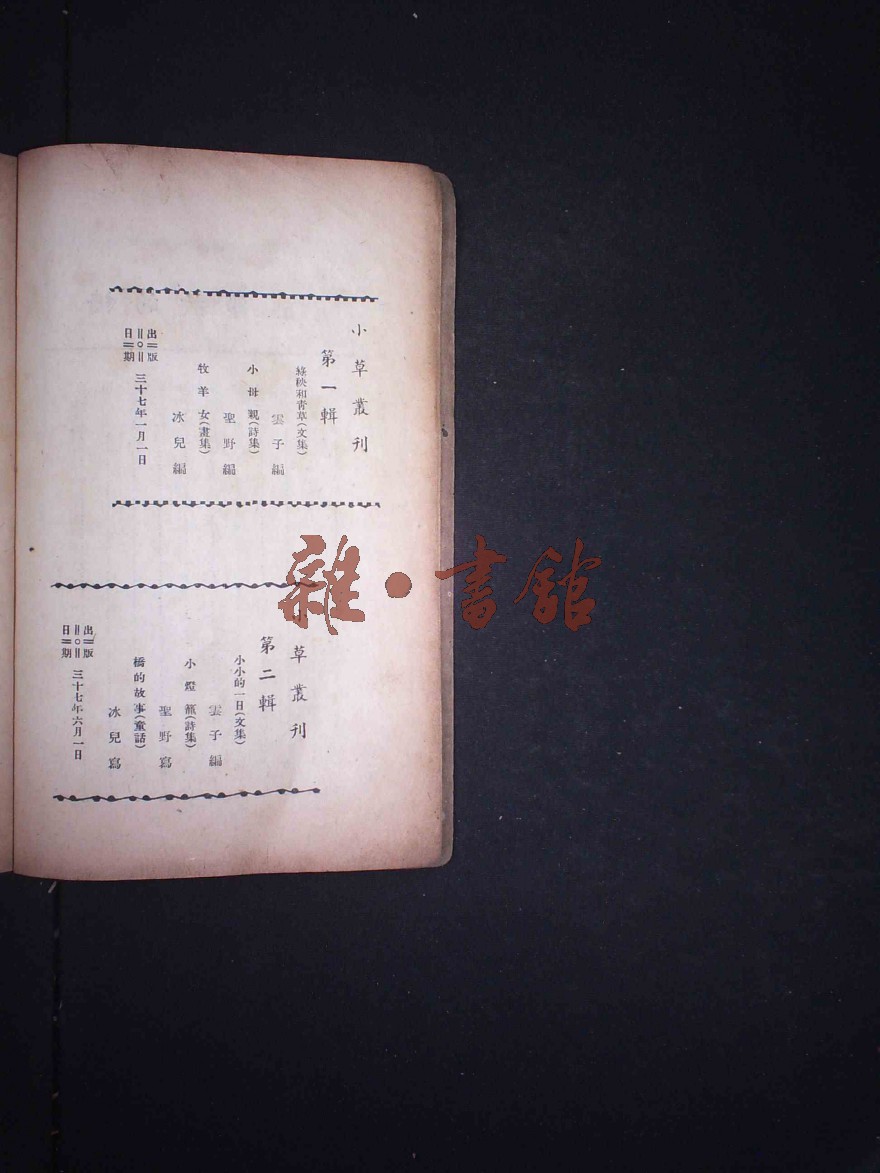 小草叢刊
第一輯
綠秧和青草(文集)
雲子編
小母親(詩集)
聖野編
牧羊女(畫集)
冰兒編
出版
日期
三十七年一月一日
小草叢刊
第二輯
小小的一日(文集)
雲子編
小燈籠(詩集)
聖野寫
橋的故事(童話)
冰兒寫
出版
日期
三十七年六月一日
雜·書館